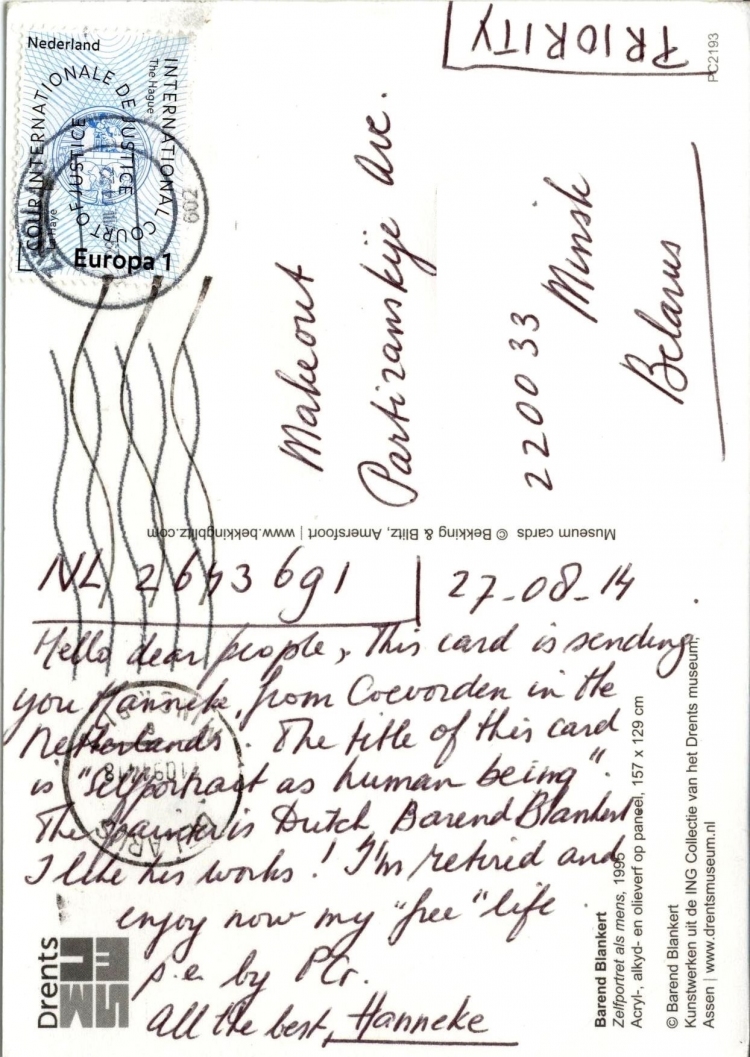 Nederland
COUR INTERNATIONALE DE JUSTICE
INTERNATIONAL COURT OF JUSTICE
The Hague
Europa 1
602
PRIORITY
PC2193
Makeout
Partizanskije Ave.
220033
Minsk
Belarus
Museum cards © Bekking & Blitz, Amersfoort | www.bekkingblitz.com
NL 2643691
27-08-14
Hello dear people, This card is sending
you Hanneke, from Coevorden in the
Netherlands. The title of this card
is "selfportrait as human being".
The painter is Dutch, Barend Blankert
I like his works! I'm retired and
enjoy now my "free" life
p.e. by PCr.
All the best, Hanneke
Drents
Barend Blankert
Zelfportret als mens, 1995
Acryl-, alkyd- en olieverf op paneel, 157 x 129 cm
© Barend Blankert
Kunstwerken uit de ING Collectie van het Drents museum,
Assen | www.drentsmuseum.nl